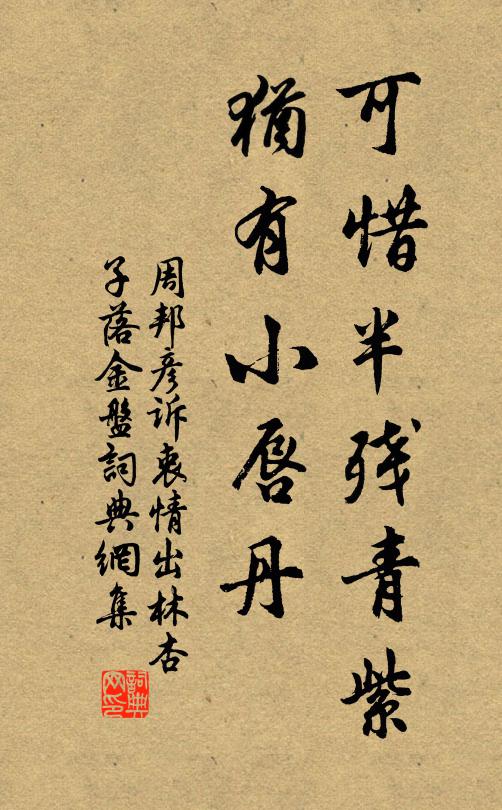 可惜半残青紫
猶有小唇丹
周邦彦訴衷情出林杏
子落金盤詞典網集
詞典
网印